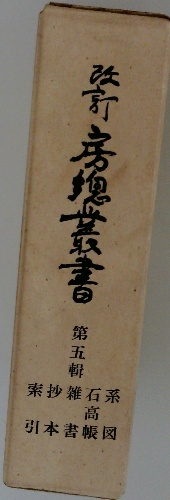 改訂房總叢書
第五輯
系図
石高帳
雑書
抄本
索引